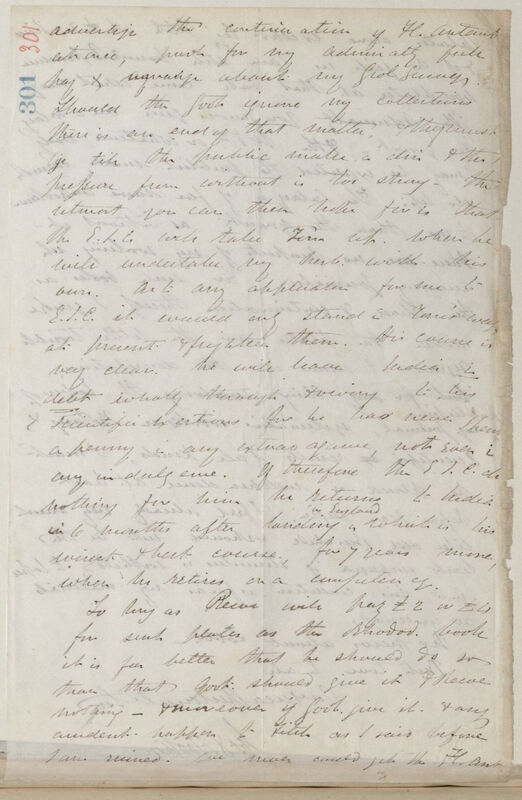 301
301
advertise the continuation of Fl. Antarct
at once, push for my Admiralty full
pay & agitate about my Govt Surveys.
Should the Govt ignore my collections
there is an end of that matter, & they must
go till the public make a din & the
pressure from without is too strong - the
utmost you can then hope for is that
the E.I.C. will take Tom up. When he
will undertake my herb. with his
own. As to any application for me to
E.I.C. it would only stand in Tom's way
at present & frighten them. His course is
very clear. he will leave India in
debt wholly through & owing to his
Scientific Exertions. for he has never spent
a penny in any extravagance, not even in
any indulgence. If therefore the E.I.C. do
nothing for him he returns to India
in 6 months after landing in England, which is his
wisest & best course. for 7 years more,
when he retires on a competency.
So long as Reeve will pay £2 or £4
for such plates as the Rhodod. book
it is far better that he should do so
than that Govt. should give it & Reeve
nothing - & moreover if Govt. give it. & any
accident happen to Fitch as I said before
I am ruined. We never could get the Fl. Ant